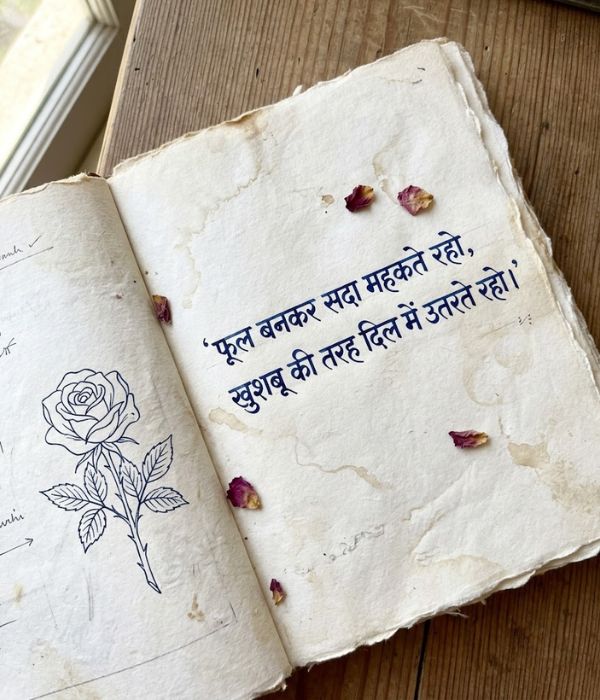 ‘फूल बनकर सदा महकते रहो,
खुशबू की तरह दिल में उतरते रहो।’